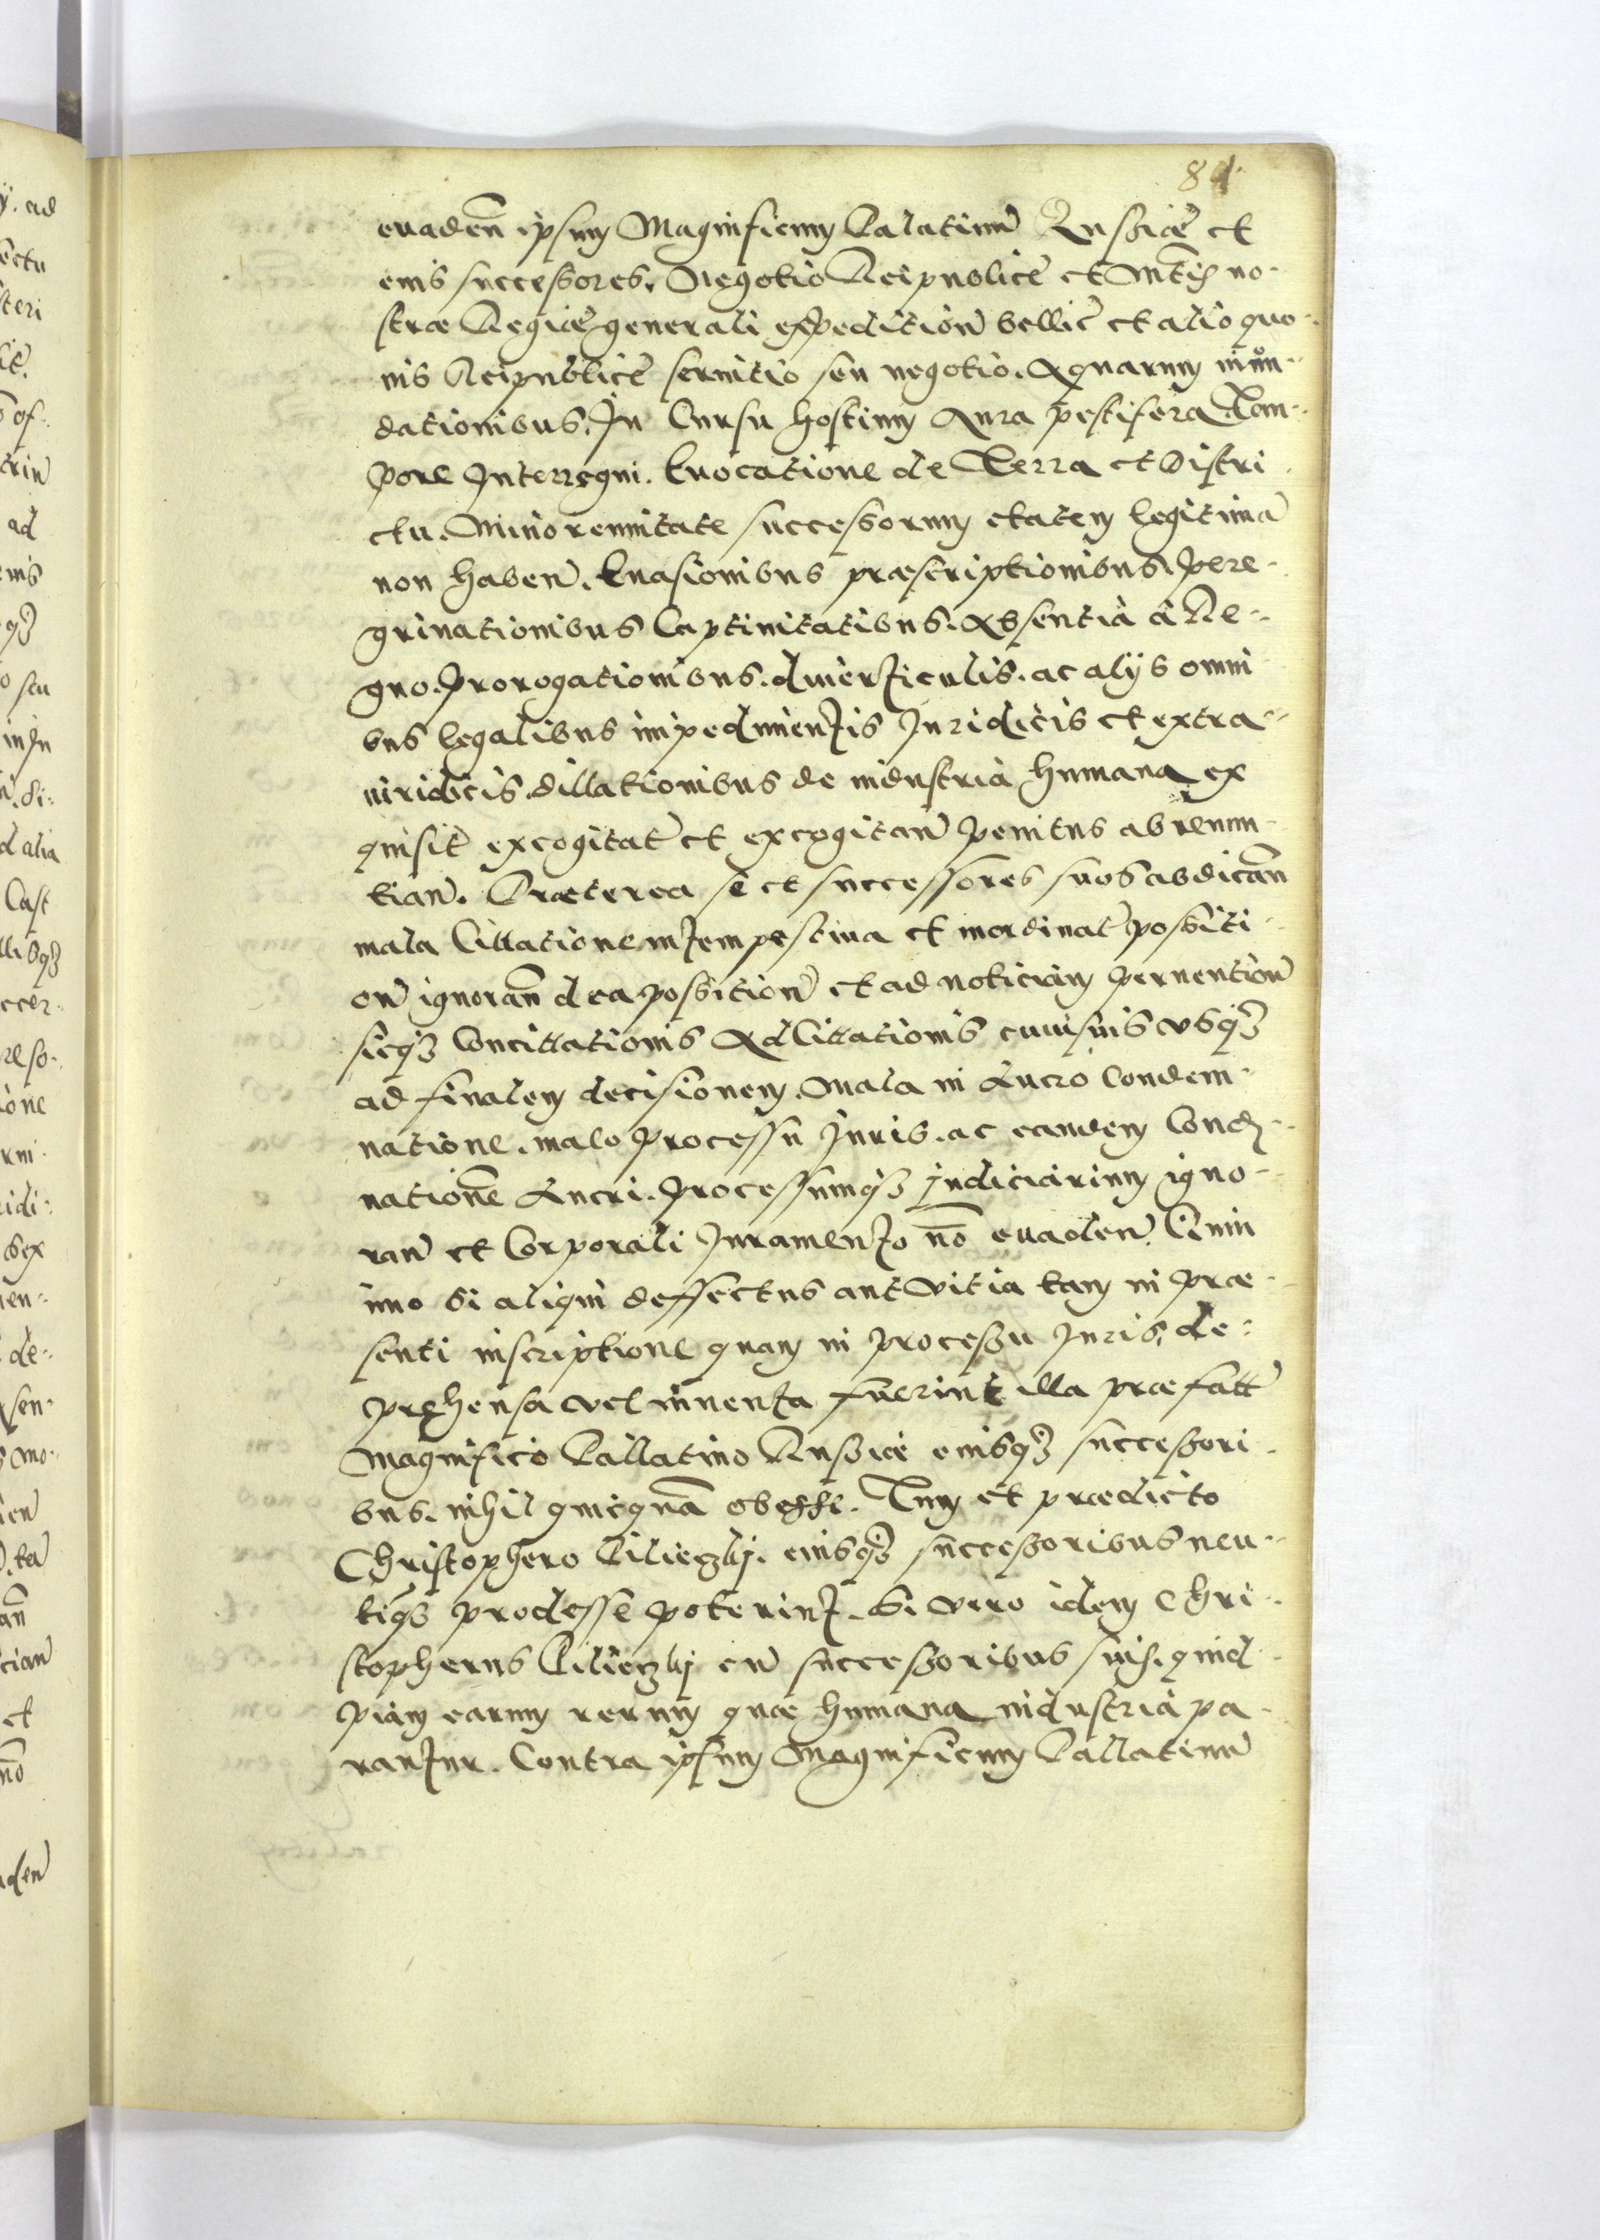 84
evaden̄ ipsum Magnificum Palatinū Russiae et
eius successores. Negotio Reipublicae et Mtis no-
strae Regiae generali expeditioñ bellic̄ et alio quo-
uis Reipublicae seruitio seu negotio. Aquarum inun-
dationibus. In Cursu hostium Aura pestifera Tem-
pore Interregni. Euocatione de Terra et Distri
ctu. Minorennitate successorum etatem legitimā
non haben̄. Euasionibus praescriptionibus. Pere-
grinationibus Captiuitatibus. Absentia à Re-
gno. Prorogationibus. diuerticulis. ac alys omni
bus legalibus impedimentis Juridicis et extra-
iuridicis dillationibus de industria humana ex
quisit̄ excogitat̄ et excogitan̄ penitus abrenun-
tian̄. Praeterea se et successores suos abdican̄
mala Cittatione intempestiua et inordinat̄ positi-
on̄ ignoran̄ de ea possition̄ et ad noticiam peruention̄
sicq3 Concittationis Adcittationis cuiusuis usq3
ad finalem decisionem. Mala in Lucro Condem-
natione. malo processu Juris. ac eandem Cond-
natione Lucri. Processumq3 judiciarium igno-
ran̄ et Corporali Juramento nō euaden̄. Quin
imo si aliqui deffectus aut vitia tam in prae-
senti inscriptione quam in processu Juris, de-
prehensa vel inuenta fuerint illa praefatt̄
Magnifico Pallatino Russiae eiusq3 successori-
bus. nihil quicquā obesse. Tum et praedicto
Christophero Pilieczkj. eiusq3 successoribus neu-
tiq3 prodesse poterint. Si vero idem Chri-
stopherus Pilieczkj cū successoribus suis. quid-
piam earum rerum quae humana industria pa-
rantur. Contra ipsum Magnificum Pallatinū